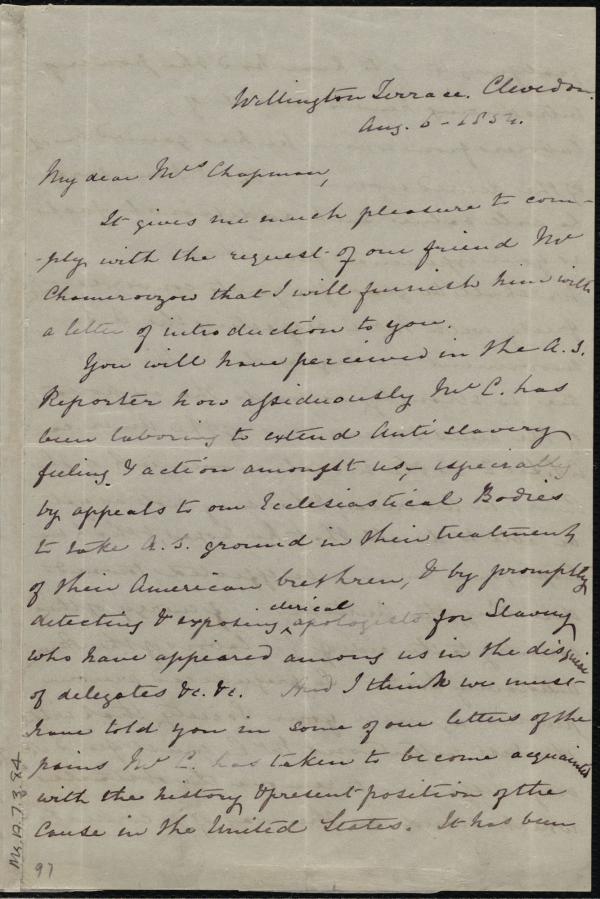 Wellington Terrace. Clevedon.
Aug. 5 - 1854.
My dear Mrs Chapman,
It gives me much pleasure to com-
-ply with the request of our friend Mr
Chamerovzow that I will furnish him with
a letter of introduction to you.
You will have perceived in the A. S.
Reporter how assiduously Mr C. has
been laboring to extend Anti slavery
feeling & action amongst us, - especially
by appeals to our Ecclesiastical Bodies
to take A. S. ground in their treatment
of their American brethren, & by promptly
detecting & exposing clerical apologists for Slavery
who have appeared among us in the disguise
of delegates &c. &c. And I think we must
have told you in some of our letters of the
pains Mr C. has taken to become acquainted
with the history & present position of the
Cause in the United States. It has been
Ms. A. 7. 3. 84
97